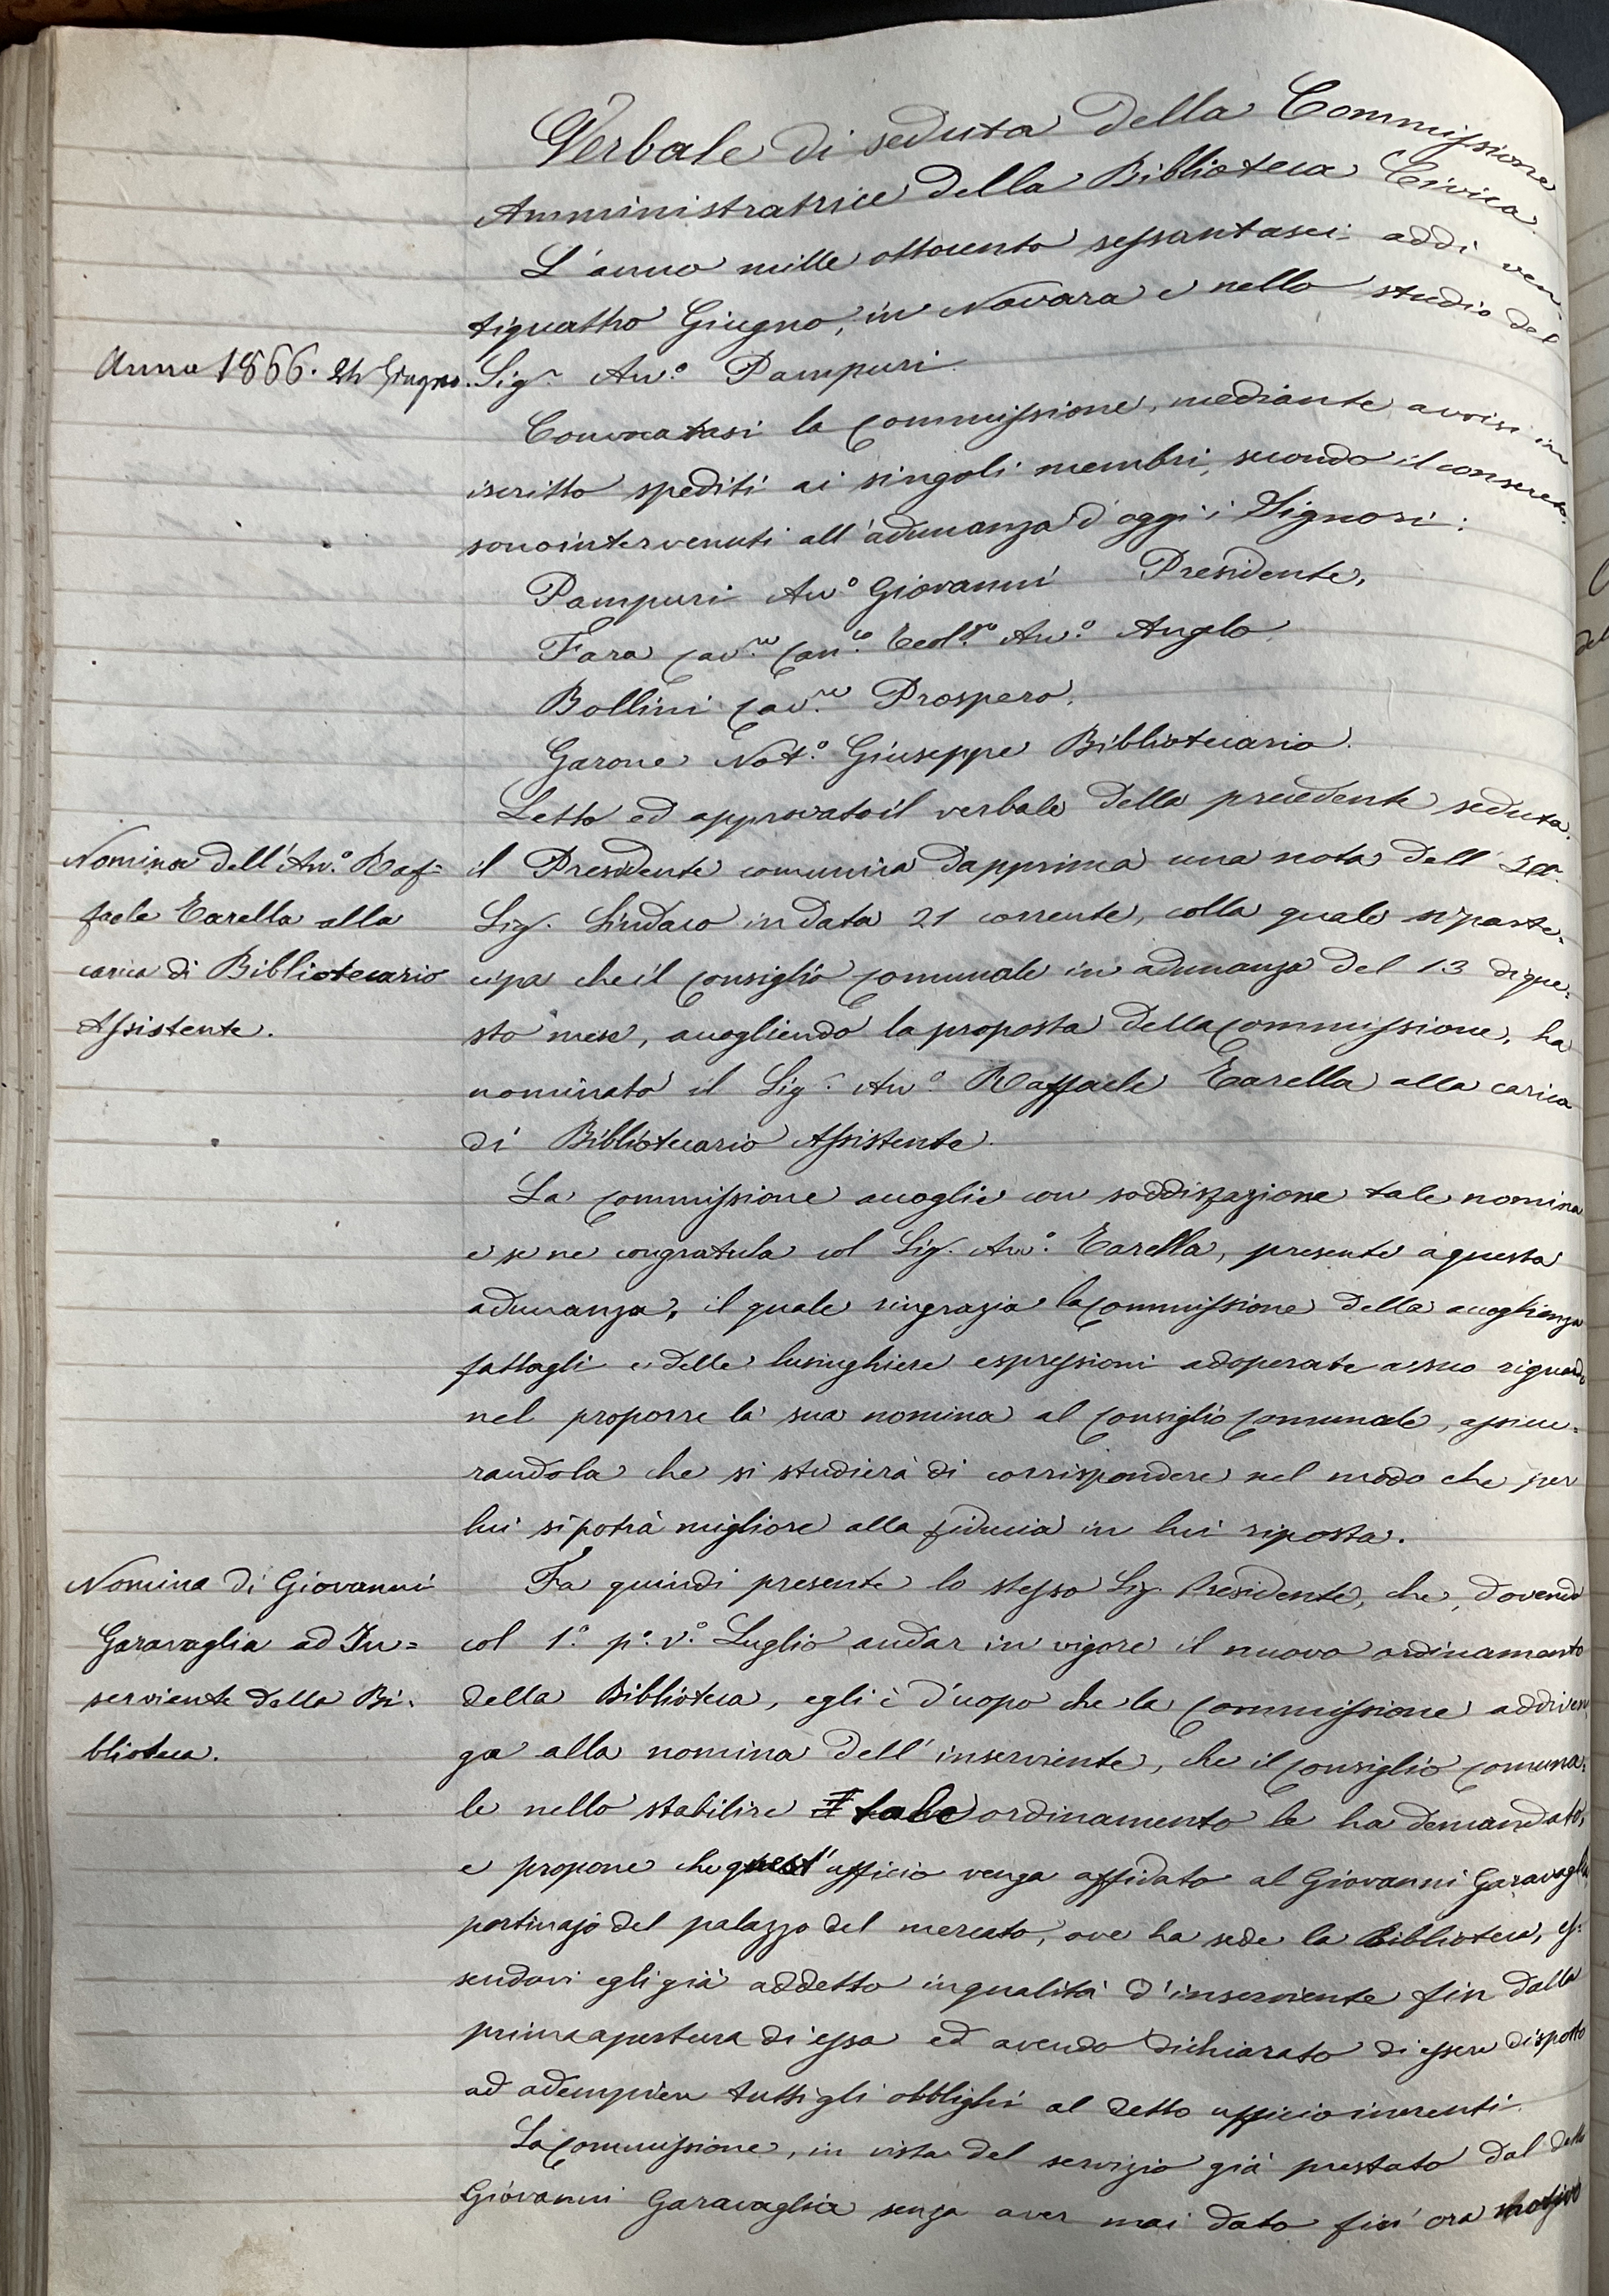 Verbale di seduta della Commissione
Amministratrice della Biblioteca Civica.
L'anno mille ottocento sessantasei addi ven-
tiquattro Giugno, in Novara e nello studio del
Anno 1866. 24 Giugno.
Sig.r Avv.o Pampuri.
Convocatasi la Commissione, mediante avvisi in
iscritto spediti ai singoli membri, secondo il consueto,
sono intervenuti all'adunanza d'oggi i Signori:
Pampuri Avv.o Giovanni Presidente,
Fara Cav.re Can.co Teol.go Avv.o Anglo,
Bollini Cav.re Prospero,
Garone Not.o Giuseppe Bibliotecario.
Letto ed approvato il verbale della precedente seduta,
Nomina dell'Avv.o Raf=
faele Tarella alla
carica di Bibliotecario
Assistente.
il Presidente comunica dapprima una nota dell'
Sig. Sindaco in data 21 corrente, colla quale si parte-
cipa che il Consiglio Comunale in adunanza del 13 di que-
sto mese, accogliendo la proposta della Commissione, ha
nominato il Sig.r Avv.o Raffaele Tarella alla carica
di Bibliotecario Assistente.
La Commissione accoglie con soddisfazione tale nomina
e se ne congratula col Sig. Avv.o Tarella, presente a questa
adunanza, il quale ringrazia la Commissione della accoglienza
fattagli e delle lusinghiere espressioni adoperate a suo riguardo
nel proporre la sua nomina al Consiglio Comunale, assicu-
randola che si studierà di corrispondere nel modo che per
lui si potrà migliore alla fiducia in lui riposta.
Nomina di Giovanni
Garavaglia ad In=
serviente della Bi-
blioteca.
Fa quindi presente lo stesso Sig. Presidente, che, dovendo
col 1.o p.o v.o Luglio andar in vigore il nuovo ordinamento
della Biblioteca, egli è d'uopo che la Commissione addiven
ga alla nomina dell'inserviente, che il Consiglio Comuna-
le nello stabilire tale ordinamento le ha demandato,
e propone che quest'ufficio venga affidato al Giovanni Garavaglia
portinajo del palazzo del mercato, ove ha sede la Biblioteca, es-
sendovi egli già addetto in qualità d'inserviente fin dalla
prima apertura di essa ed avendo dichiarato di essere disposto
ad adempiere tutti gli obblighi al detto ufficio inerenti.
La Commissione, in vista del servizio già prestato dal detto
Giovanni Garavaglia senza aver mai dato fin'ora motivo